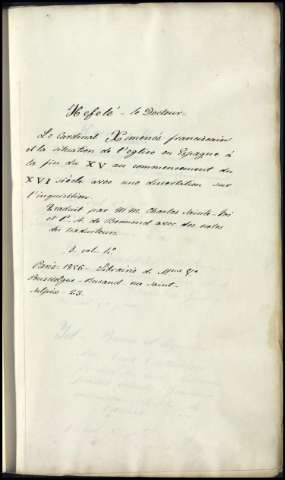 Hefelé - le Docteur.
Le Cardinal Ximenès franciscain
et la situation de l'église en Espagne à
la fin du XV au commencement du
XVI siècle avec une dissertation sur
l'inquisition.
Traduit par M M. Charles Sainte-Foi
et P. A. de Bermond avec des notes
des traducteurs.
1. vol. 4º
Paris - 1856 - Librairie de Mme Ve
Poussielgue - Rusand rue Saint-
Sulpice - 23.